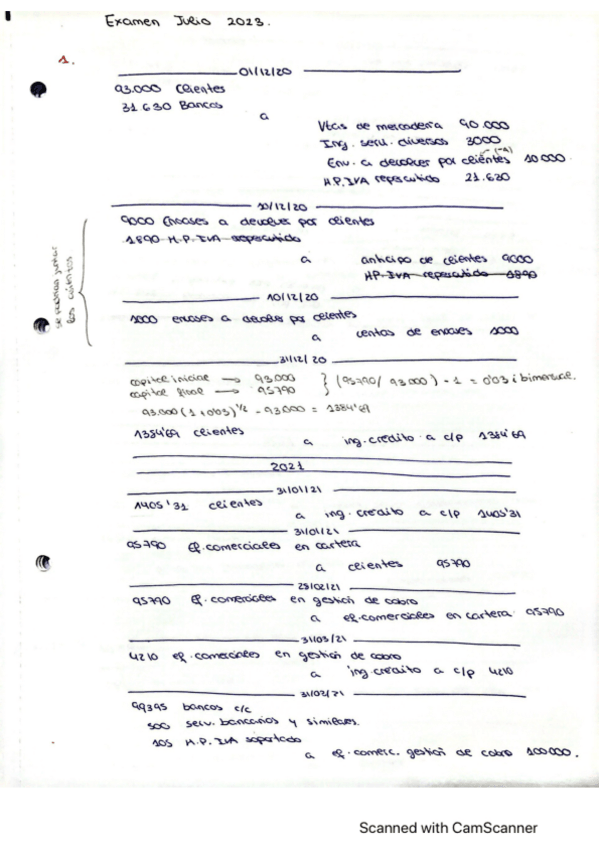 Examen Julio 2023.
1.
01/12/20
93.000 Clientes
31 630 Bancos
a
Vtas de mercadería 90.000
Ing. serv. diversos 3000
Env. a devolver por clientes (-A) 10000
H.P. IVA repercutido 21.630
10/12/20
9000 Envases a devolver por clientes
1890 H.P. IVA repercutido
a anticipo de clientes 9000
HP IVA repercutido 1890
se pueden juntar
los asientos
10/12/20
1000 envases a devolver por clientes
a ventas de envases 1000
31/12/20
capital inicial → 93.000
capital final → 95790
} (95790/ 93000) - 1 = 0'03 i bimensual.
93.000 (1+0'03)^1/2 - 93.000 = 1384'69
1384'69 clientes
a ing. credito a c/p 1384'69
2021
31/01/21
1405'31 clientes
a ing. credito a c/p 1405'31
31/01/21
95790 ef. comerciales en cartera
a clientes 95790
25/02/21
95790 ef. comerciales en gestión de cobro
a ef. comerciales en cartera 95790
31/03/21
4210 ef. comerciales en gestión de cobro
a ing. credito a c/p 4210
31/03/21
99395 bancos c/c
500 serv. bancarios y similares.
105 H.P. IVA soportado
a ef. comerc. gestión de cobro 100000.
Scanned with CamScanner